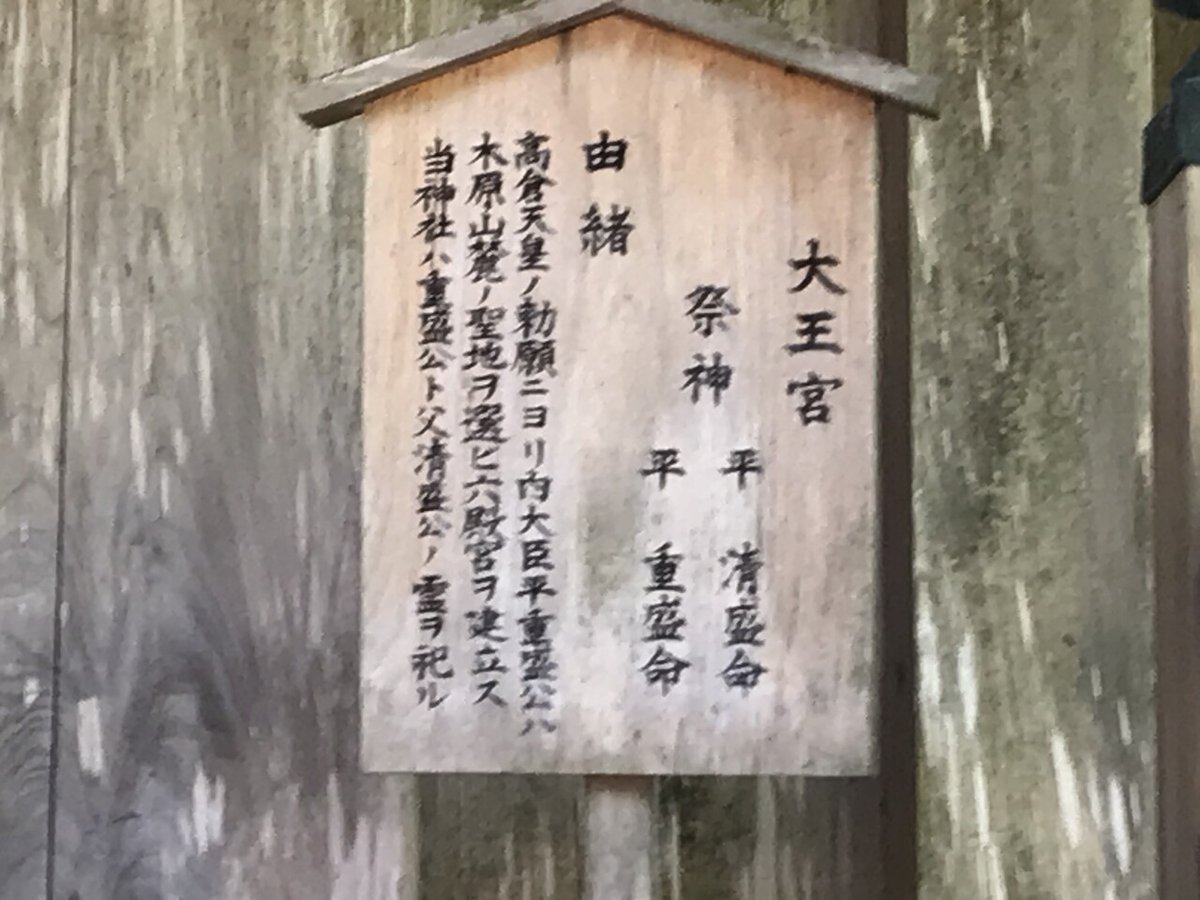 大王宮
祭神
平 清盛命
平 重盛命
由緒
高倉天皇ノ勅願ニヨリ内大臣平重盛公ハ
木原山麓ノ聖地ヲ選ビ六殿宮ヲ建立ス
当神社ハ重盛公ト父清盛公ノ霊ヲ祀ル